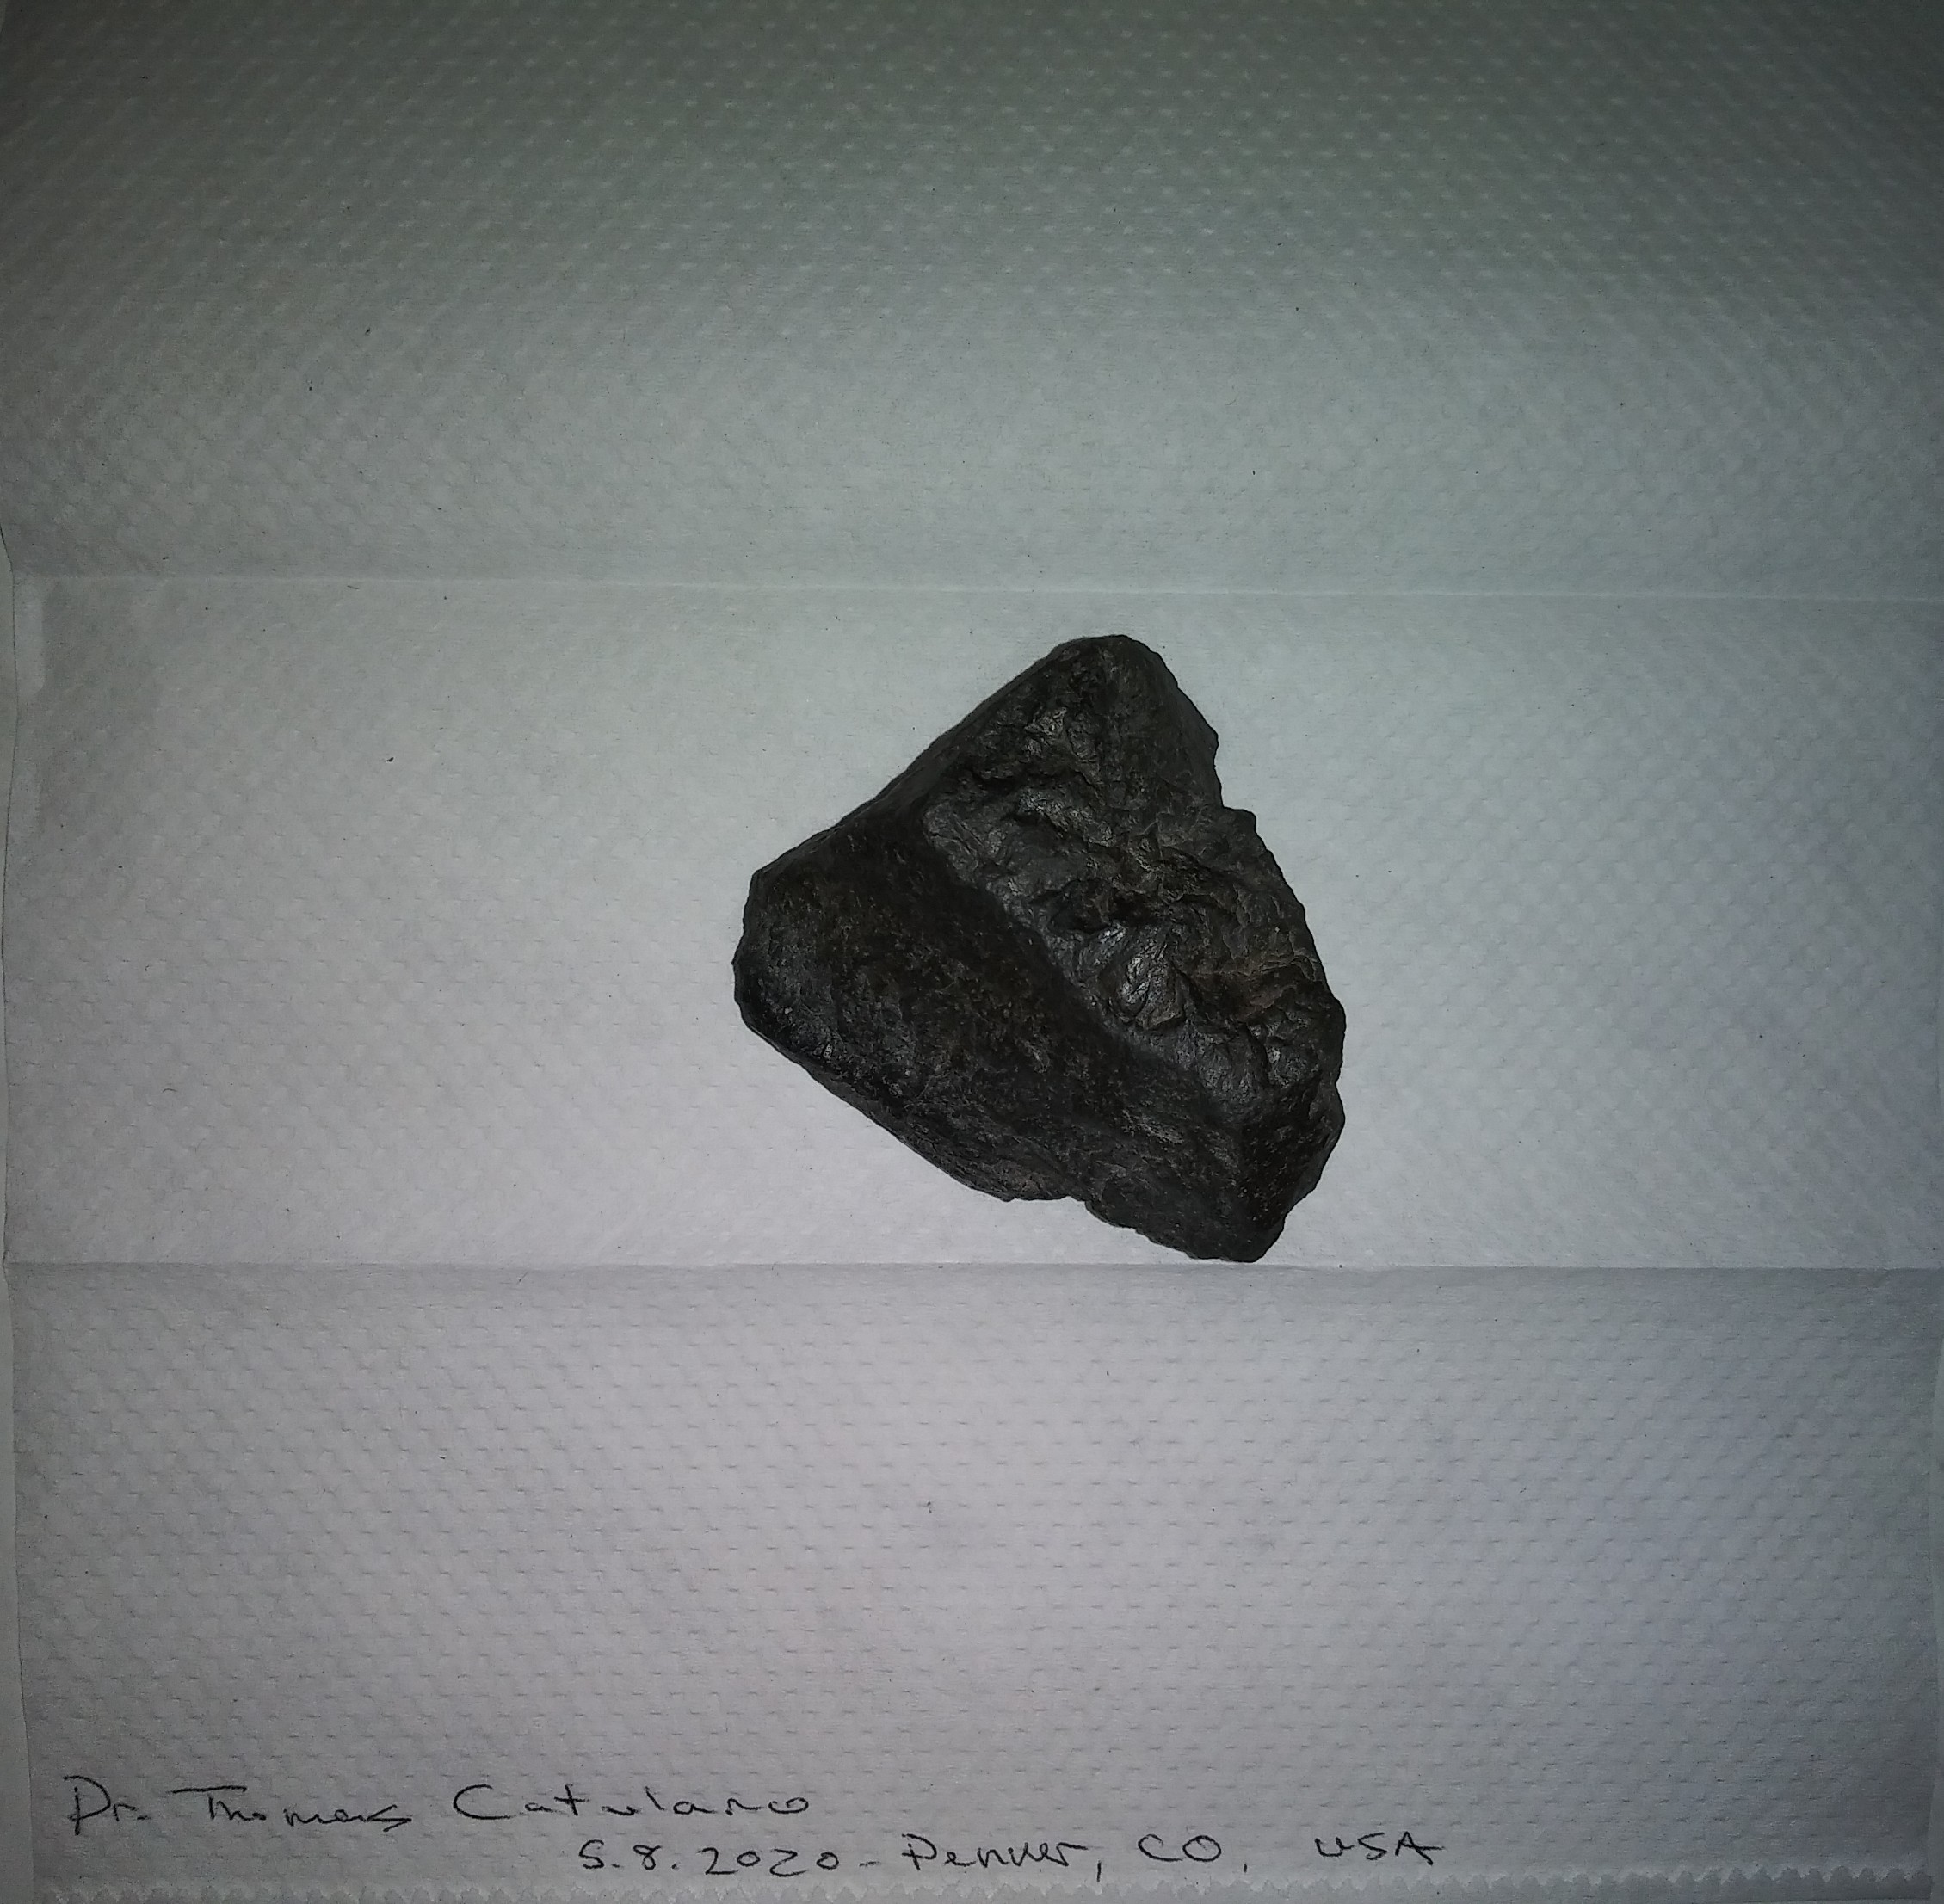 Dr. Thomas Catulano
5.8.2020 - Denver, CO, USA